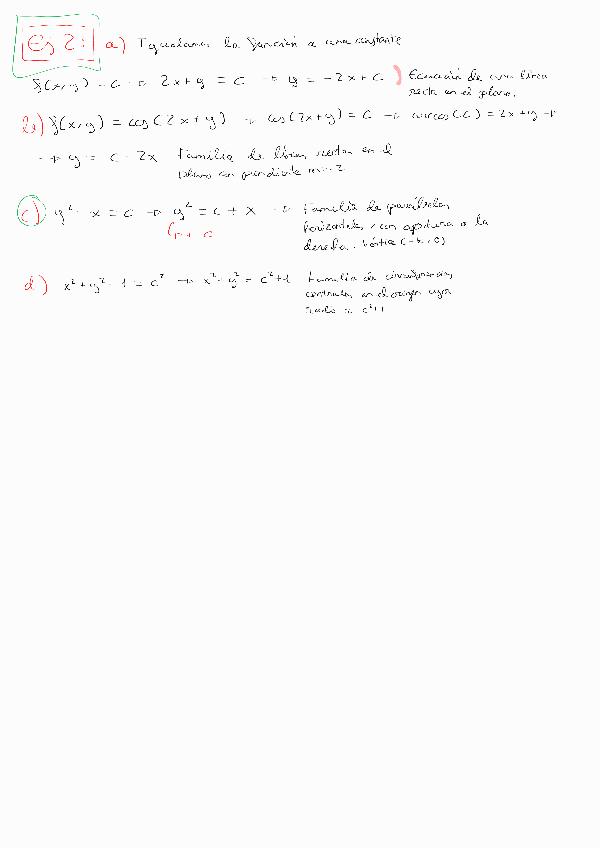 Ej 2: a) Igualamos la función a una constante
f(x,y) = c → 2x+y = c → y = -2x+c ) Ecuación de una línea
recta en el plano.
b) f(x,y) = cos(2x+y) → cos(2x+y) = c → arccos(c) = 2x+y →
→ y = c - 2x Familia de líneas rectas en el
plano con pendiente m=-2
c) y² - x = c → y² = c + x → Familia de parábolas
horizontales, con apertura a la
derecha. Vértice (-k, 0)
d) x²+y²-1 = c² → x²+y² = c²+1 Familia de circunferencias
centradas en el origen cuyo
radio = c²+1